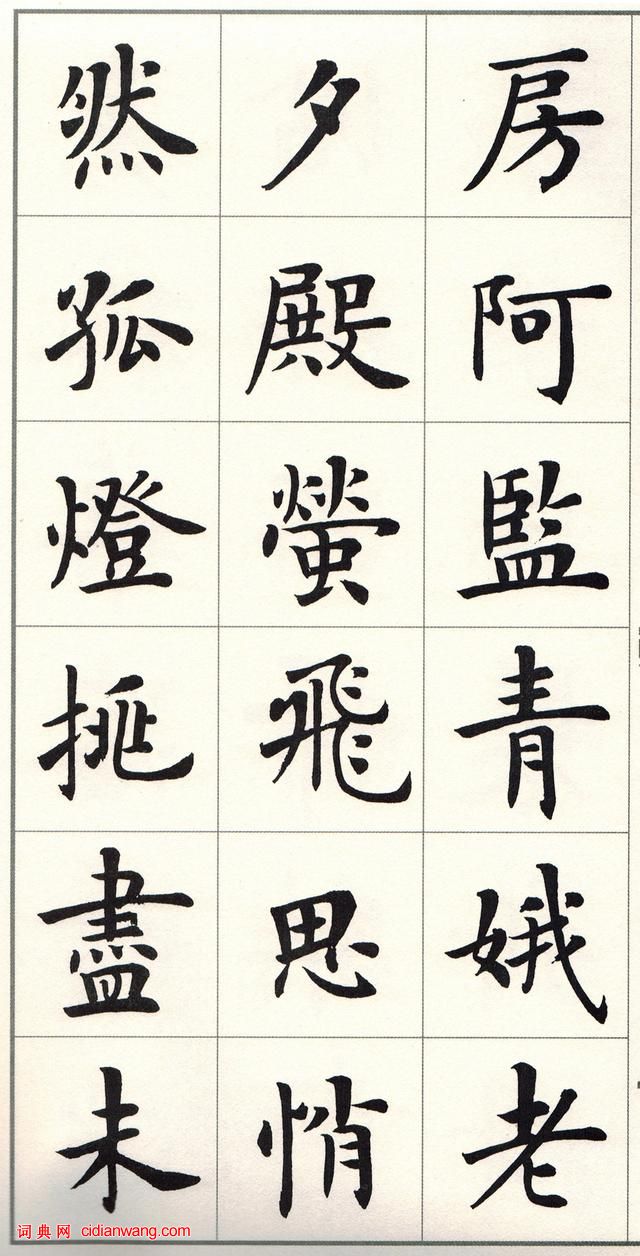 房阿監青娥老
夕殿螢飛思悄
然孤燈挑盡未
词典网 cidianwang.com